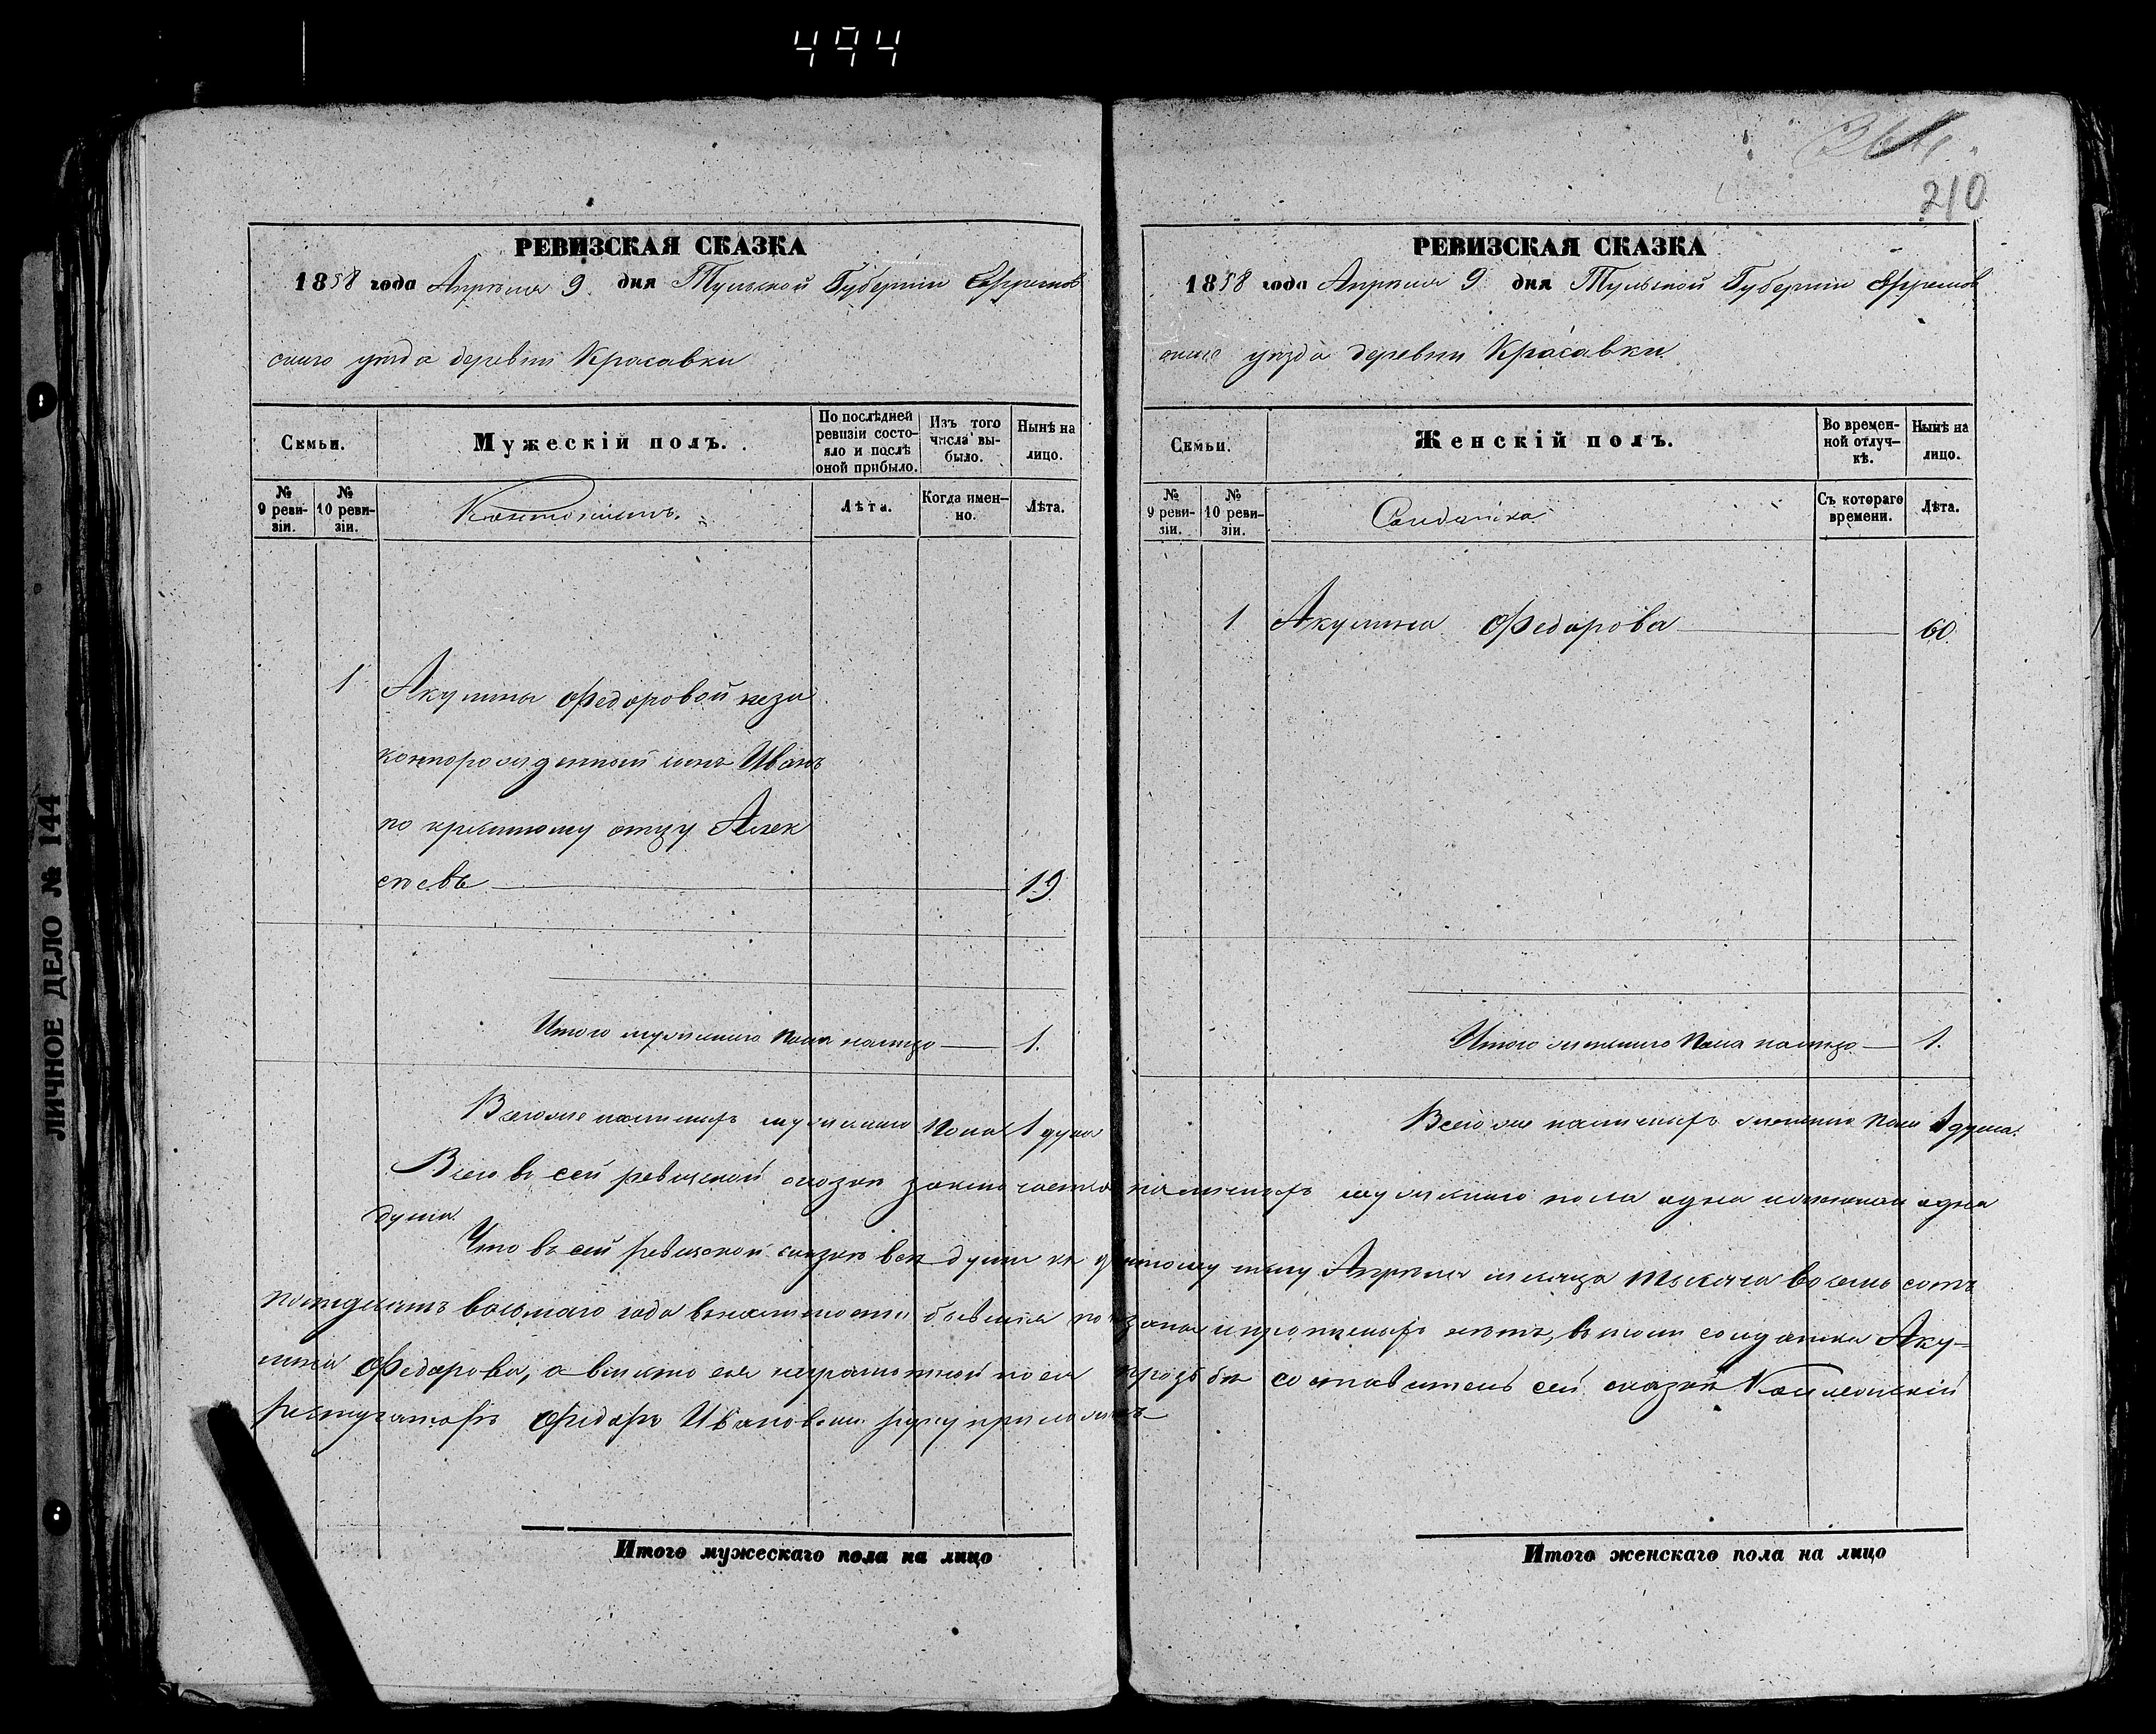 494
210
РЕВИЗСКАЯ СКАЗКА
1858 года Апреля 9 дня Тульской Губернии Ефремов
скаго уезда деревни Красавки
Семьи.
Мужескій полъ.
По послѣдней ревизіи состояло и послѣ оной прибыло.
Изъ того числа выбыло.
Нынѣ на лицо.
№ 9 ревизіи.
№ 10 ревизіи.
Кантонистъ.
Лѣта.
Когда именно.
Лѣта.
1 Акулины Федоровой неза
коннорожденный сынъ Иванъ
по крестному отцу Алек
сѣевъ 19
Итого мужескаго пола налицо 1.
Всего же наличныхъ мужескаго пола 1 душа
РЕВИЗСКАЯ СКАЗКА
1858 года Апреля 9 дня Тульской Губернии Ефремов
скаго уезда деревни Красавки
Семьи.
Женскій полъ.
Во временной отлучкѣ.
Нынѣ на лицо.
№ 9 ревизіи.
№ 10 ревизіи.
Солдатка
Съ котораго времени.
Лѣта.
1 Акулина Федорова 60
Итого женскаго пола налицо 1.
Всего же наличныхъ женскаго пола 1 душа.
Всего въ сей ревизской сказкѣ заключается наличныхъ мужескаго пола одна и женскаго одна
душа.
Что въ сей ревизской сказкѣ всѣ души къ девятому числу Апрѣля месяца тысяча восемь сотъ
пятьдесятъ восьмаго года въ наличности бывшія показаны и прописныхъ нѣтъ, въ томъ солдатка Аку-
лина Федорова, а вместо ея неграмотной по ея прозьбѣ составитель сей сказки Коллежскій
регистраторъ Федоръ Ивановъ руку приложилъ
Итого мужескаго пола на лицо
Итого женскаго пола на лицо
ЛИЧНОЕ ДЕЛО № 144